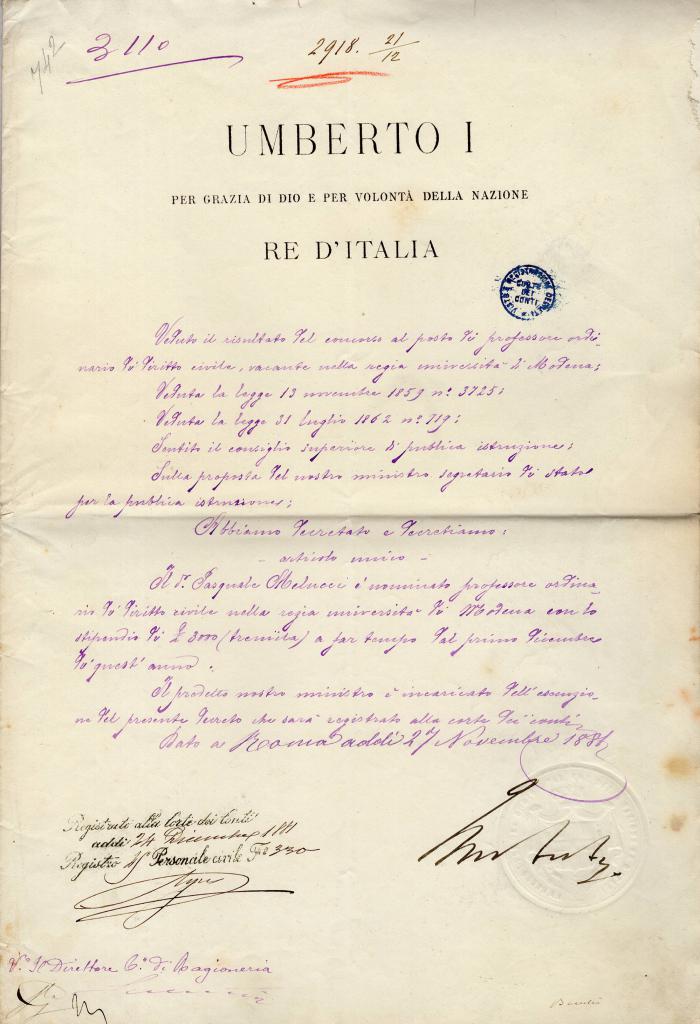 742
3110
2918. 21/12
UMBERTO I
PER GRAZIA DI DIO E PER VOLONTÀ DELLA NAZIONE
RE D'ITALIA
CORTE
DEI
CONTI
Veduto il risultato del concorso al posto di professore ordi-
nario di diritto civile, vacante nella regia università di Modena;
Veduta la legge 13 novembre 1859 nº 3725;
Veduta la legge 31 luglio 1862 nº 719;
Sentito il consiglio superiore di pubblica istruzione;
Sulla proposta del nostro ministro segretario di stato
per la pubblica istruzione;
Abbiamo decretato e decretiamo:
- articolo unico -
Il dr. Pasquale Melucci è nominato professore ordina-
rio di diritto civile nella regia università di Modena con lo
stipendio di £ 3000 (tremila) a far tempo dal primo dicembre
di quest'anno.
Il predetto nostro ministro è incaricato dell'esecuzio-
ne del presente decreto che sarà registrato alla corte dei conti.
Dato a Roma addì 27 Novembre 1881
Umberto
Registrato alla Corte dei Conti
addì 24 Dicembre 1881
Registro Personale civile Fº 330
Vº Il Direttore C.º di Ragioneria